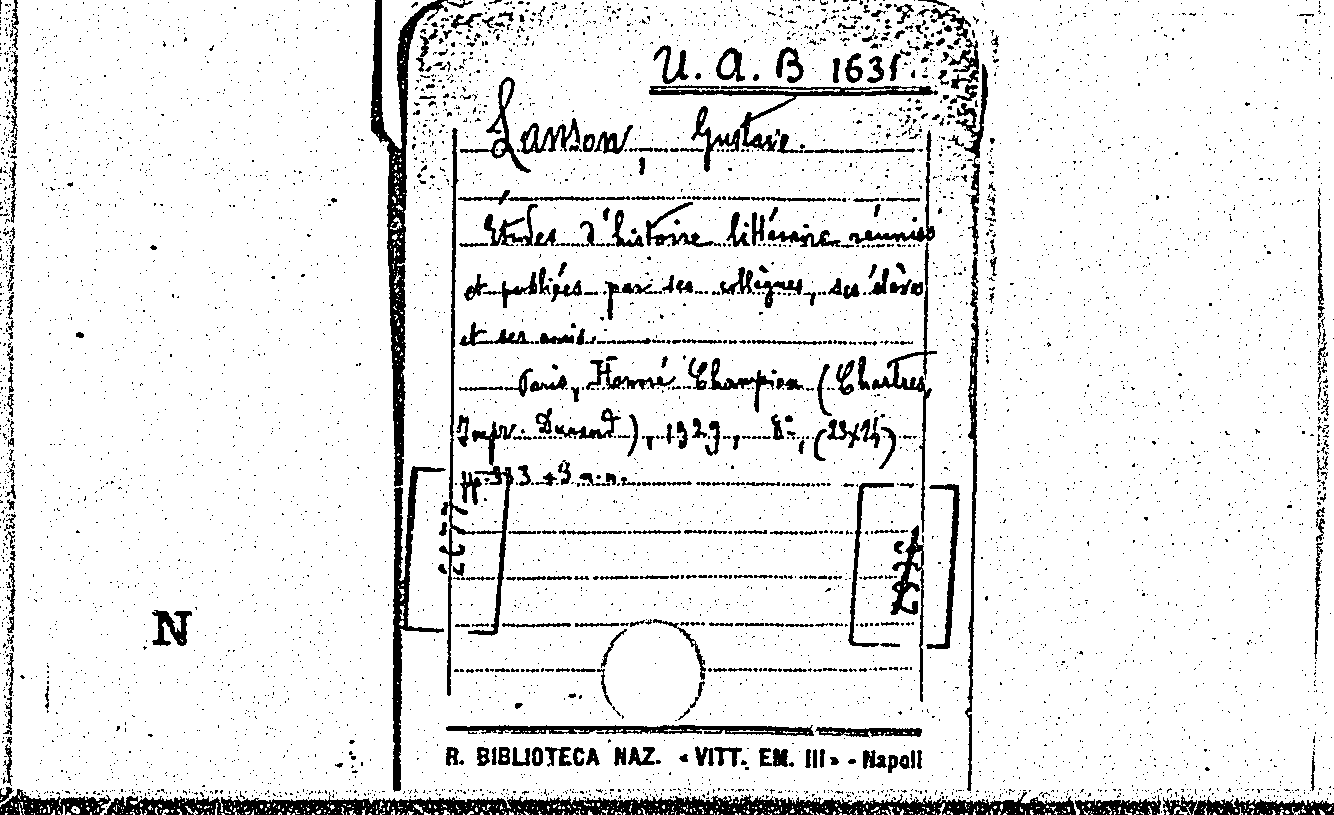 U. A. B 1631.
Lanson, Gustave.
Études d'histoire littéraire réunies
et publiées par ses collègues, ses élèves
et ses amis.
Paris, Honoré Champion (Chartres,
Impr. Durand), 1929, 8°, (23x24)
pp. 333 + 3 n.n.
N
R. BIBLIOTECA NAZ. « VITT. EM. III » - Napoli